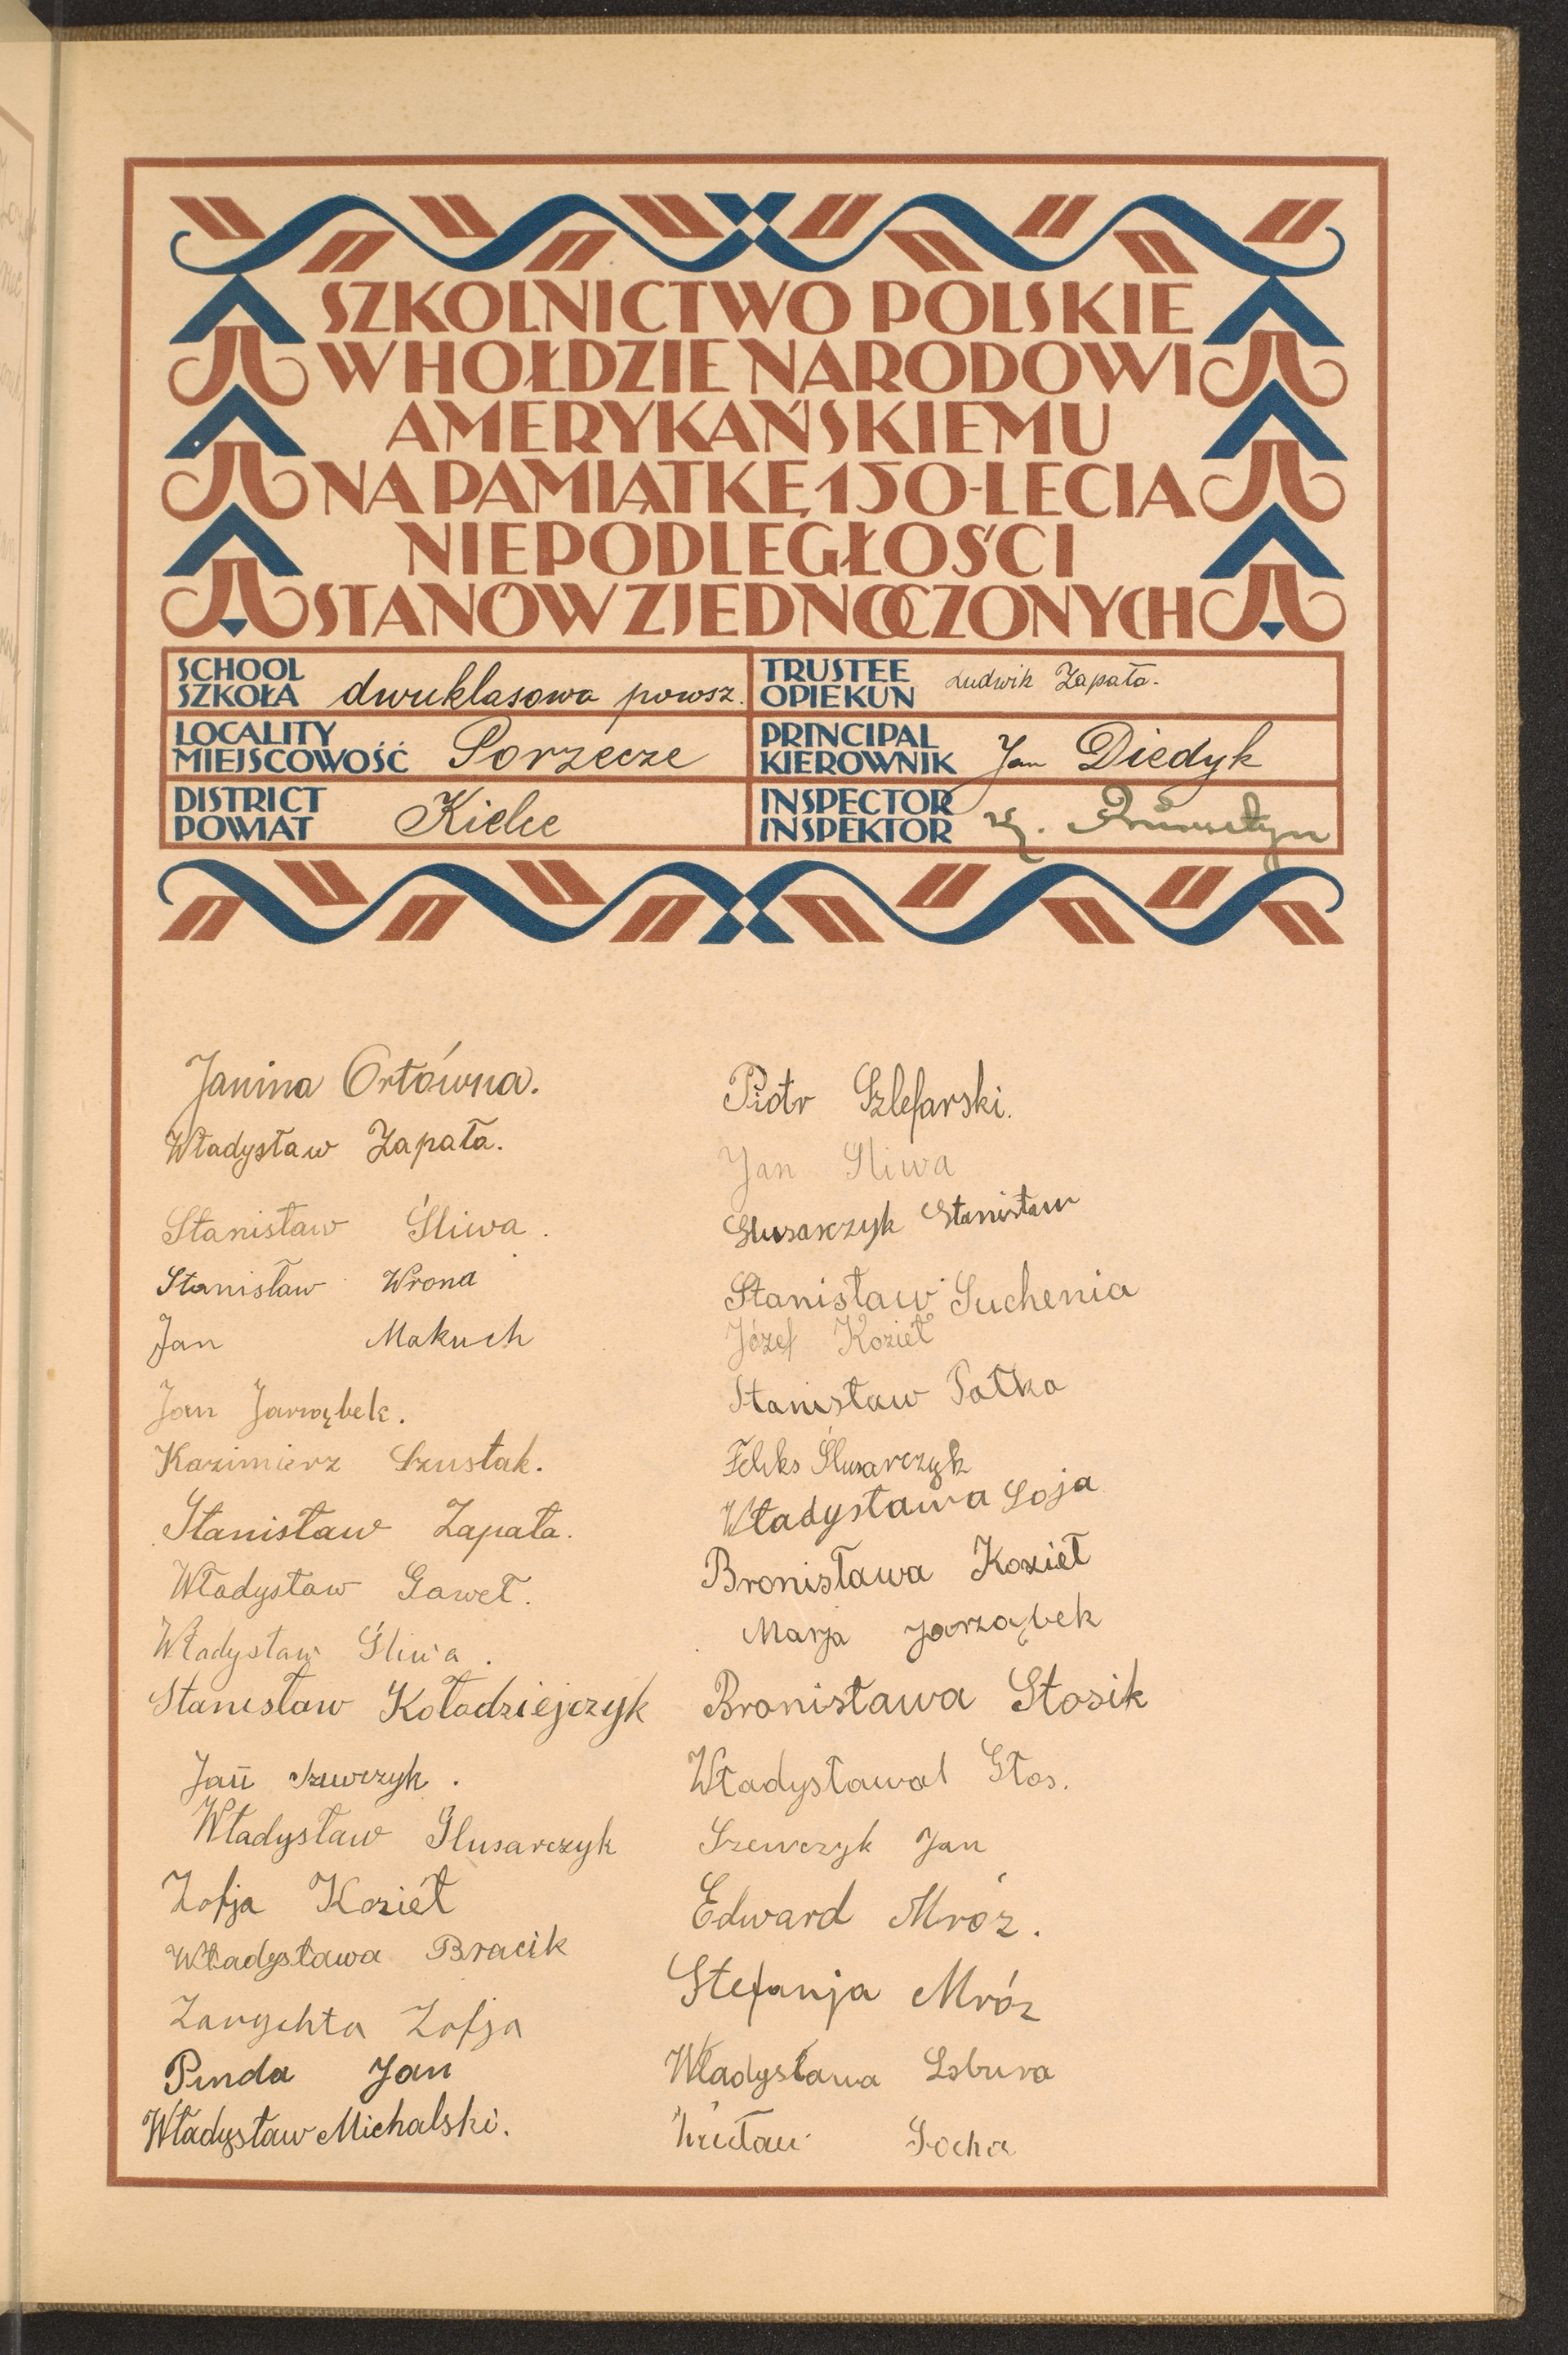 SZKOLNICTWO POLSKIE
W HOŁDZIE NARODOWI
AMERYKAŃSKIEMU
NA PAMIĄTKĘ 150-LECIA
NIEPODLEGŁOŚCI
STANÓW ZJEDNOCZONYCH
SCHOOL
SZKOŁA dwuklasowa powsz.
TRUSTEE
OPIEKUN Ludwik Zapała.
LOCALITY
MIEJSCOWOŚĆ Porzecze
PRINCIPAL
KIEROWNIK Jan Diedyk
DISTRICT
POWIAT Kielce
INSPECTOR
INSPEKTOR
Janina Ortówna.
Władysław Zapała.
Stanisław Śliwa.
Stanisław Wrona
Jan Makuch
Jan Jarząbek.
Kazimierz Szustak.
Stanisław Zapała.
Władysław Gaweł.
Władysław Śliwa.
Stanisław Kołodziejczyk
Jan
Władysław Ślusarczyk
Zofja Kozieł
Władysława Bracik
Zofja
Pinda Jan
Władysław Michalski.
Piotr Szlefarski.
Jan Sliwa
Slusarczyk Stanisław
Stanisław Suchenia
Józef Kozieł
Stanisław Pałka
Feliks Ślusarczyk
Władysława Soja
Bronisława Kozieł
Marja Jarząbek
Bronisława Stosik
Głos.
Szewczyk Jan
Edward Mróz.
Stefanja Mróz
Władysława
Socha